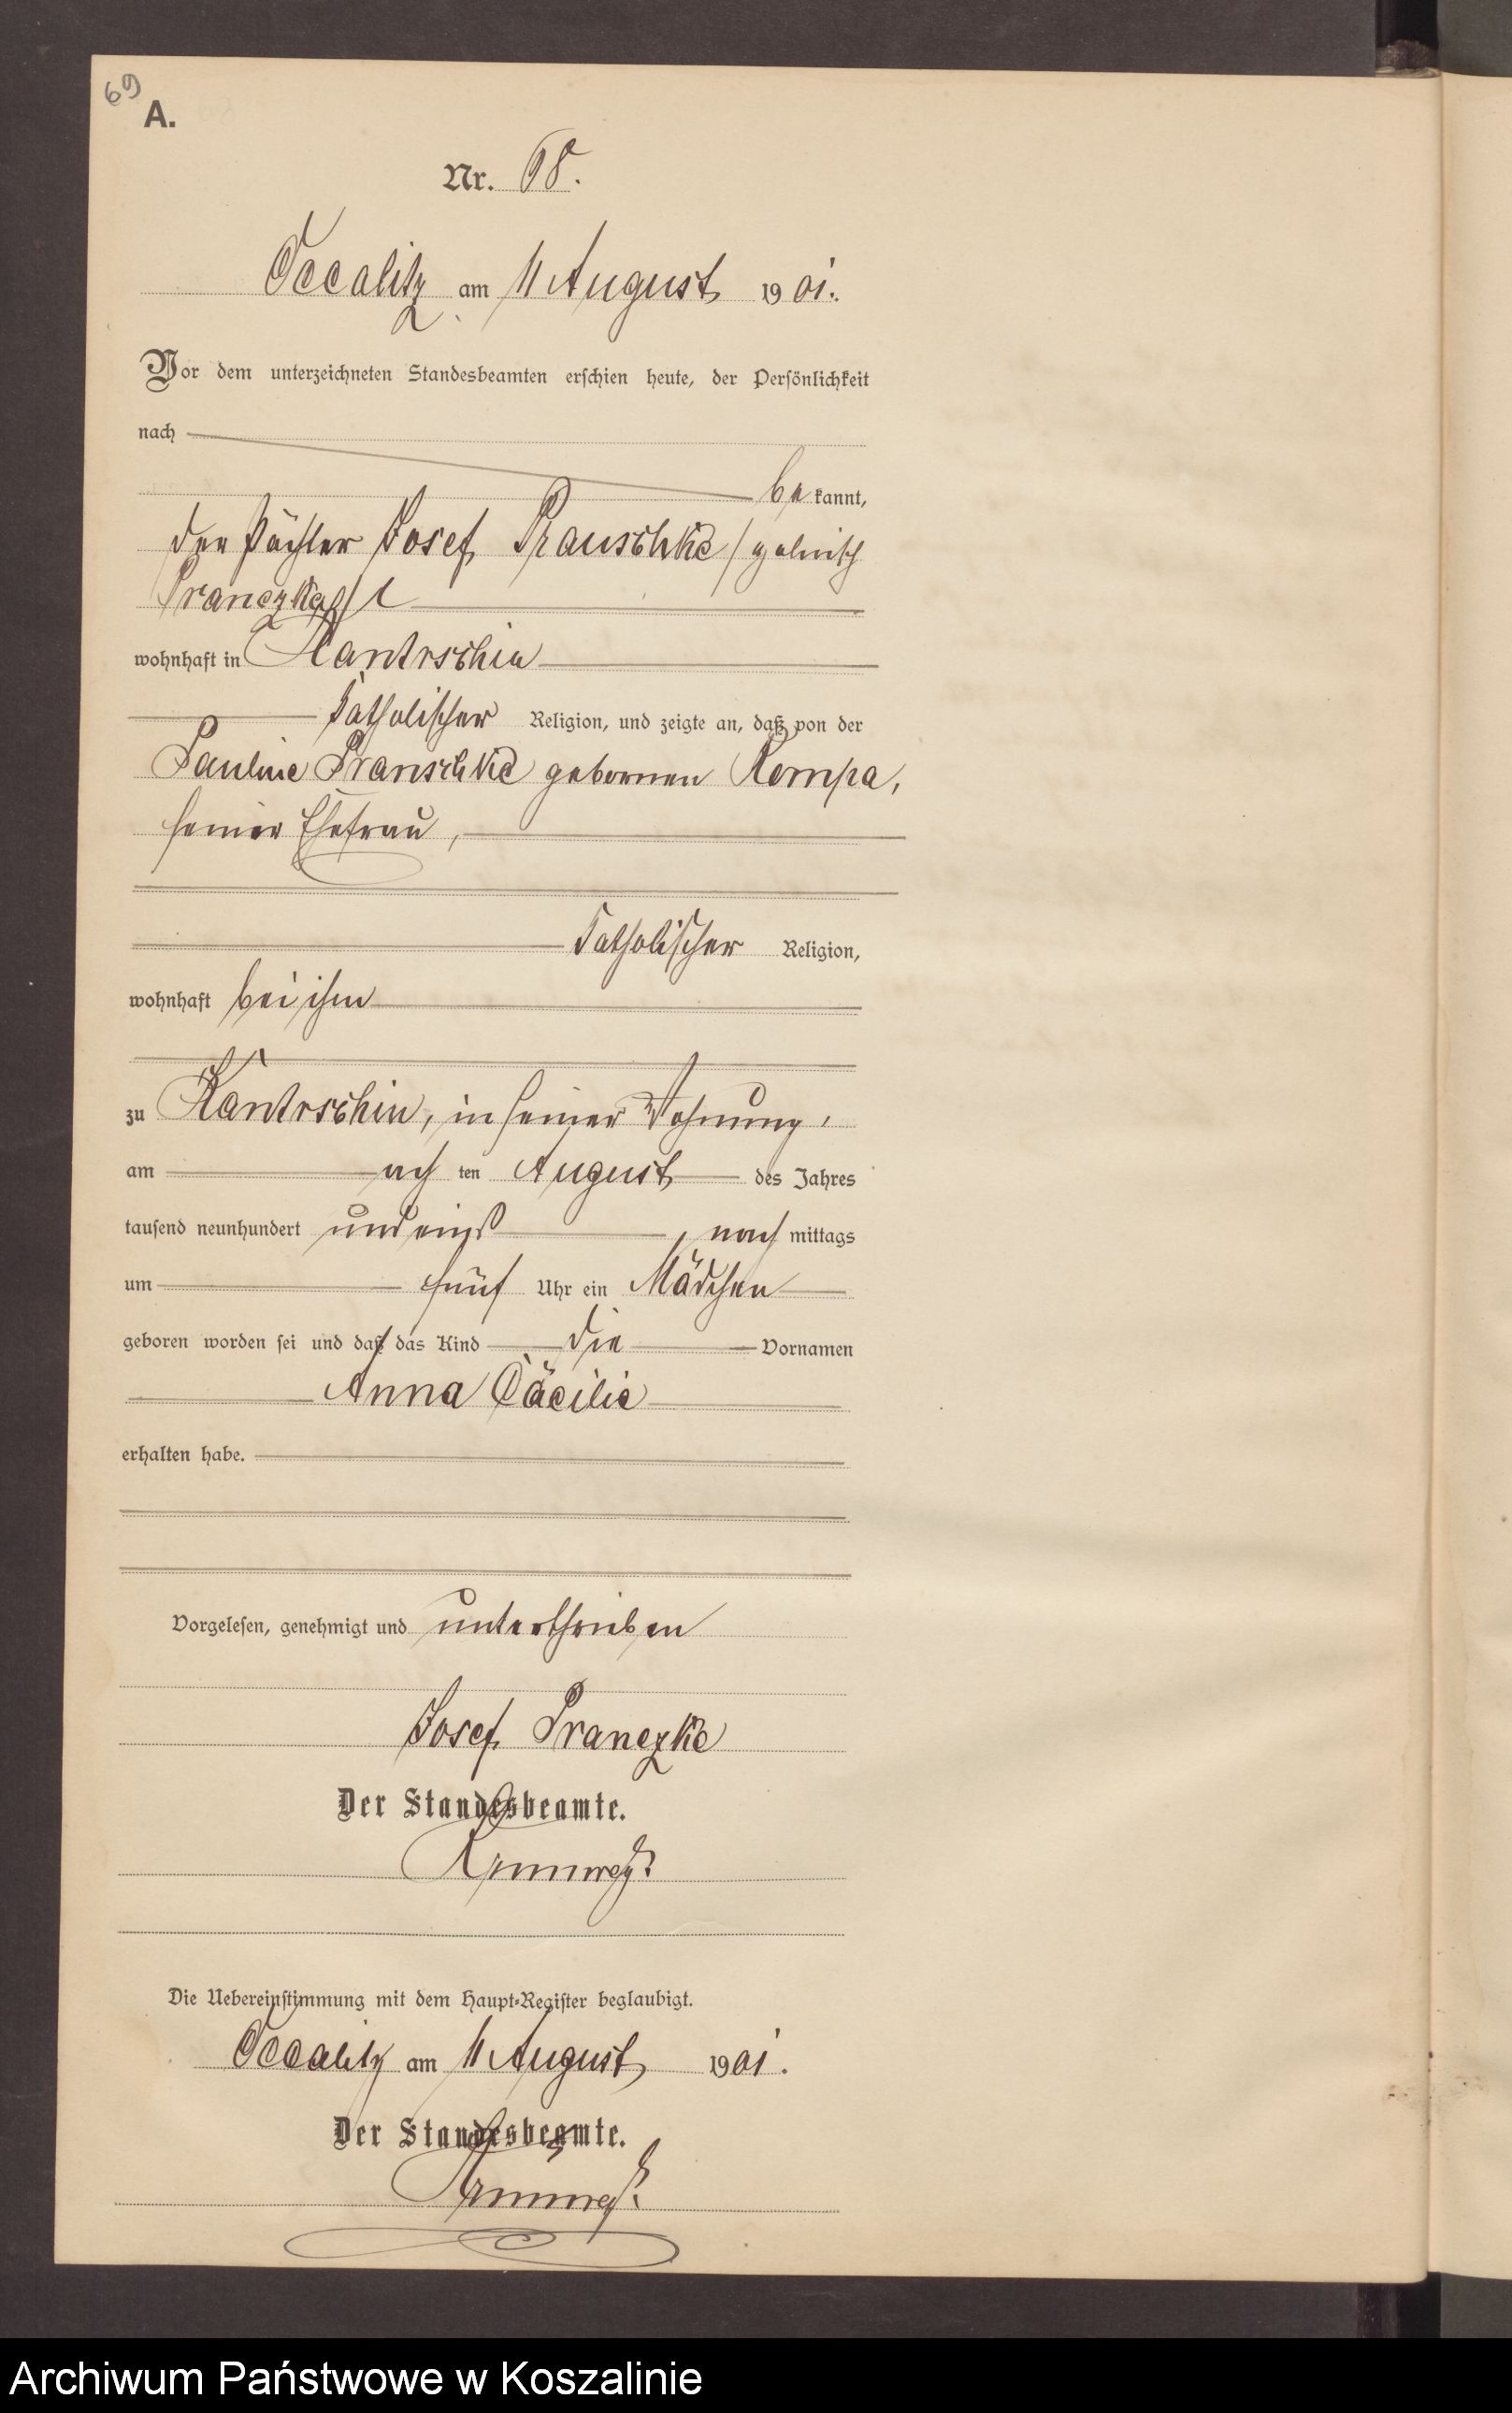 69
A.
Nr. 68.
Occalitz am 11 August 1901.
Vor dem unterzeichneten Standesbeamten erschien heute, der Persönlichkeit
nach
bekannt,
der Pächter Josef Pranschke /polnisch
Pranczke/
wohnhaft in Kantrschin
katholischer Religion, und zeigte an, daß von der
Pauline Pranschke gebornen Kompa,
seiner Ehefrau,
katholischer Religion,
wohnhaft bei ihm
zu Kantrschin, in seiner Wohnung,
am achten August des Jahres
tausend neunhundert und eins, nachmittags
um fünf Uhr ein Mädchen
geboren worden sei und daß das Kind die Vornamen
Anna Cäcilie
erhalten habe.
Vorgelesen, genehmigt und unterschrieben
Josef Pranczke
Der Standesbeamte.
Die Uebereinstimmung mit dem Haupt-Register beglaubigt.
Occalitz am 11 August 1901.
Der Standesbeamte.
Archiwum Państwowe w Koszalinie